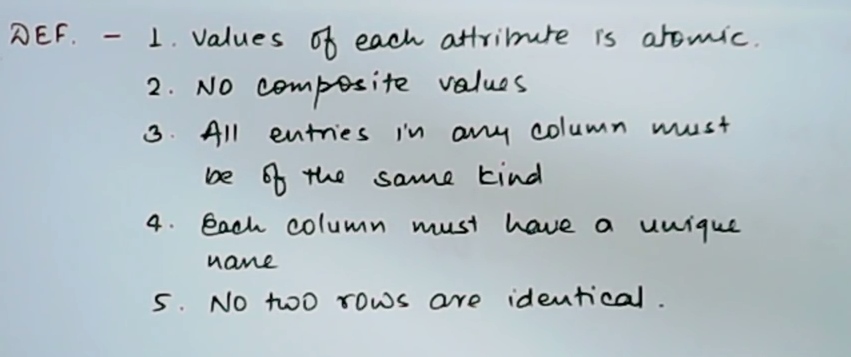 DEF. - 1. Values of each attribute is atomic.
2. No composite values
3. All entries in any column must
be of the same kind
4. Each column must have a unique
name
5. No two rows are identical.